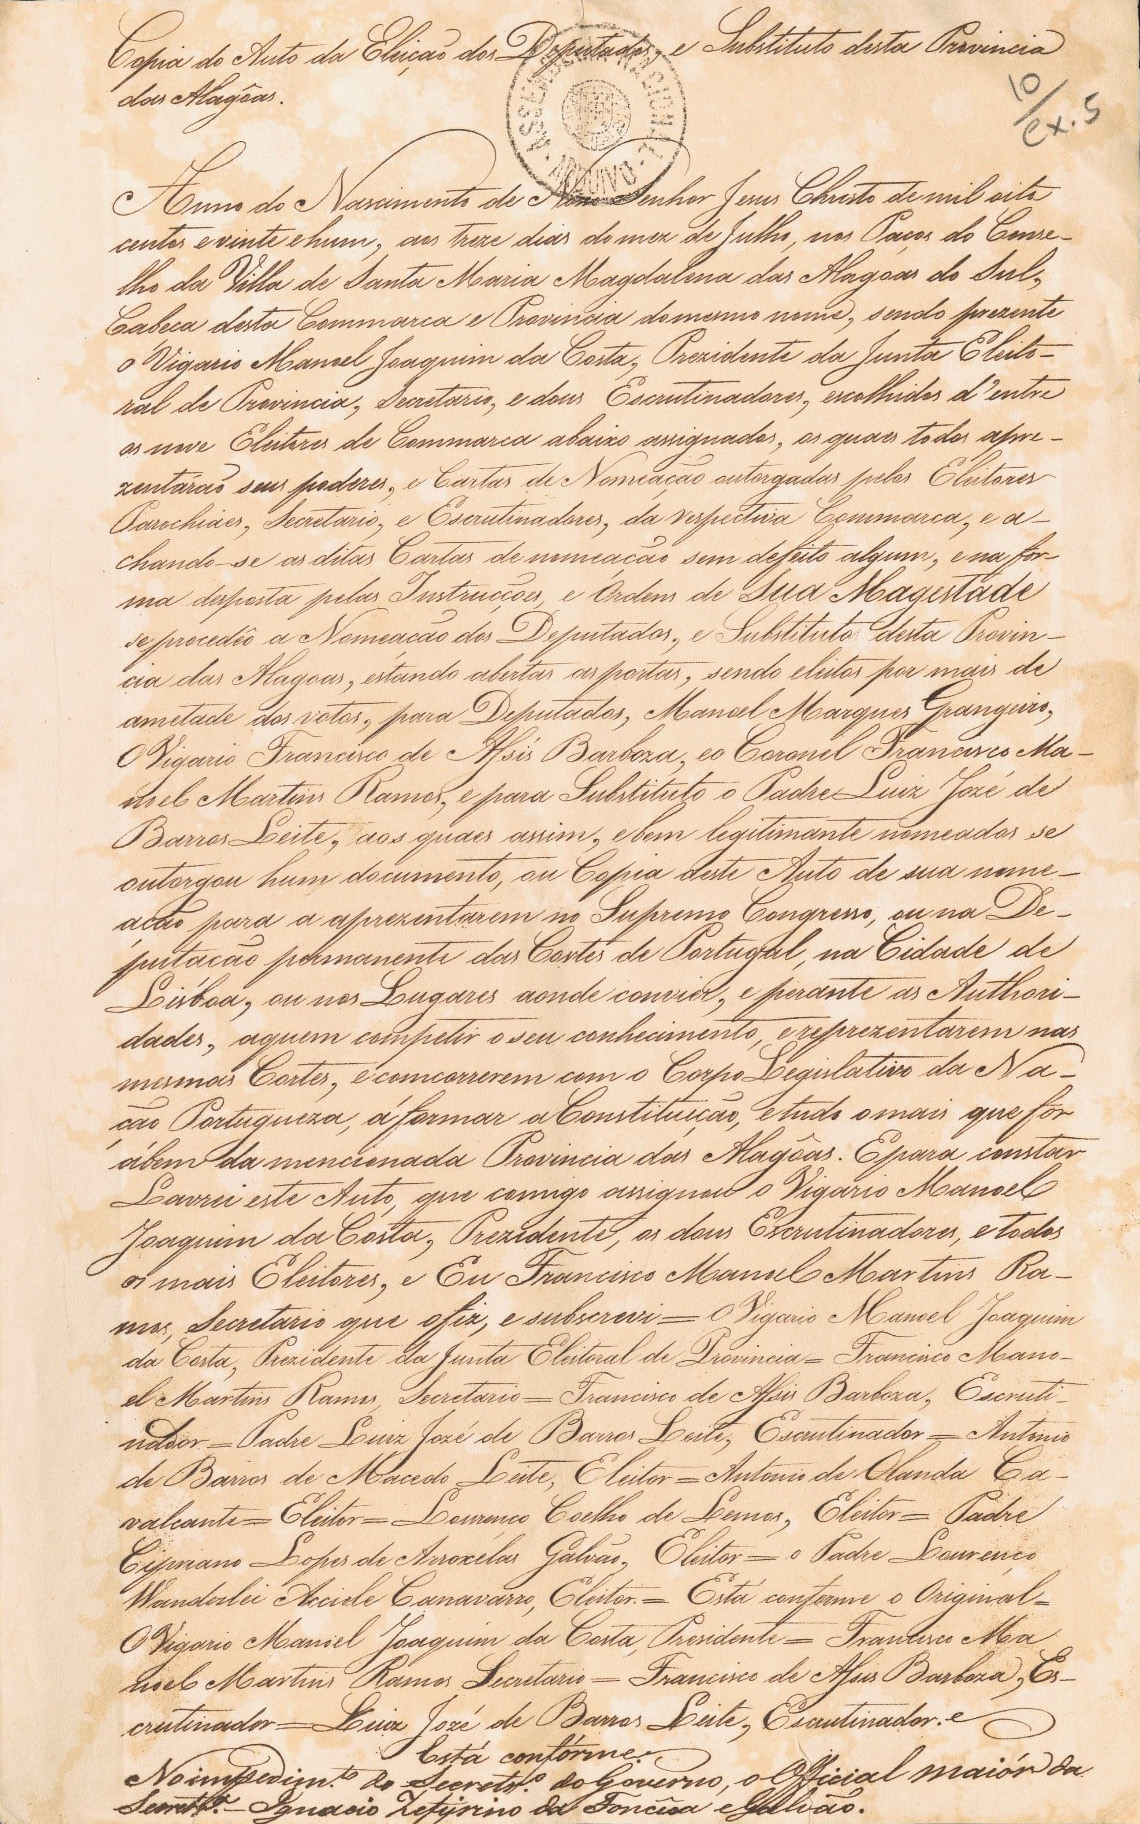 Copia do Auto da Eleição dos Deputados, e Substituto desta Provincia
das Alagôas.
ASSEMBLEIA NACIONAL
ARQUIVO
10/
Cx. 5
Anno do Nascimento de Nosso Senhor Jesus Christo de mil oito
centos e vinte e hum, aos treze dias do mez de Julho, nos Paços do Conse-
lho da Villa de Santa Maria Magdalena das Alagôas do Sul,
Cabeca desta Commarca e Provincia do mesmo nome, sendo prezente
o Vigario Manoel Joaquim da Costa, Prezidente da Junta Eleito-
ral de Provincia, Secretario, e dous Escrutinadores, escolhidos d'entre
os nove Eleitores de Commarca abaixo assignados, os quaes todos apre-
zentarão seus poderes, e Cartas de Nomeação outorgadas pelos Eleitores
Parochiaes, Secretario, e Escrutinadores, da respectiva Commarca, e a-
chando-se as ditas Cartas de nomeação sem defeito algum, e na for-
ma desposta pelas Instrucções, e Ordens de Sua Magestade
se procedêo a Nomeação dos Deputados, e Substituto desta Provin-
cia das Alagoas, estando abertas as portas, sendo eleitos por mais de
ametade dos votos, para Deputados, Manoel Marques Grangeiro,
O Vigario Francisco de Assis Barboza, e o Coronel Francisco Ma-
noel Martins Ramos, e para Substituto o Padre Luiz Jozé de
Barros Leite, aos quaes assim, e bem legitimante nomeados se
outorgou hum documento, ou Copia deste Auto de sua nome-
ação para a aprezentarem no Supremo Congresso, ou na De-
putacão permanente das Cortes de Portugal, na Cidade de
Lisboa, ou nos Lugares aonde convier, e perante as Authori-
dades, aquem competir o seu conhecimento, e reprezentarem nas
mesmas Cortes, e comcorrerem com o Corpo Legislativo da Na-
ção Portugueza, á formar a Constituição, e tudo o mais que for
ábem da mencionada Provincia das Alagôas. E para constar
Lavrei este Auto, que comigo assignou o Vigario Manoel
Joaquim da Costa, Prezidente, os dous Escrutinadores, e todos
os mais Eleitores, e Eu Francisco Manoel Martins Ra-
mos, Secretario que o fiz, e subscrevi = O Vigario Manoel Joaquim
da Costa, Prezidente da Junta Eleitoral de Provincia = Francisco Mano-
el Martins Ramos, Secretario = Francisco de Assis Barboza, Escruti-
nador = Padre Luiz Jozé de Barros Leite, Escrutinador = Antonio
de Barros de Macedo Leite, Eleitor = Antonio de Olanda Ca-
valcante = Eleitor = Lourenco Coelho de Lemos, Eleitor = Padre
Cipriano Lopes de Arroxélas Galvão, Eleitor = o Padre Lourenço
Wanderlei Acciole Canavarro, Eleitor = Está conforme o Original =
O Vigario Manoel Joaquim da Costa, Presidente = Francisco Ma
noel Martins Ramos Secretario = Francisco de Assis Barboza, Es-
crutinador = Luiz Jozé de Barros Leite, Escrutinador. e
Está confórme.
No impedim.to do Secretr.o do Governo, o Official maiór da
Secret.a Ignacio Zefyrino da Foncêca e Galvão.